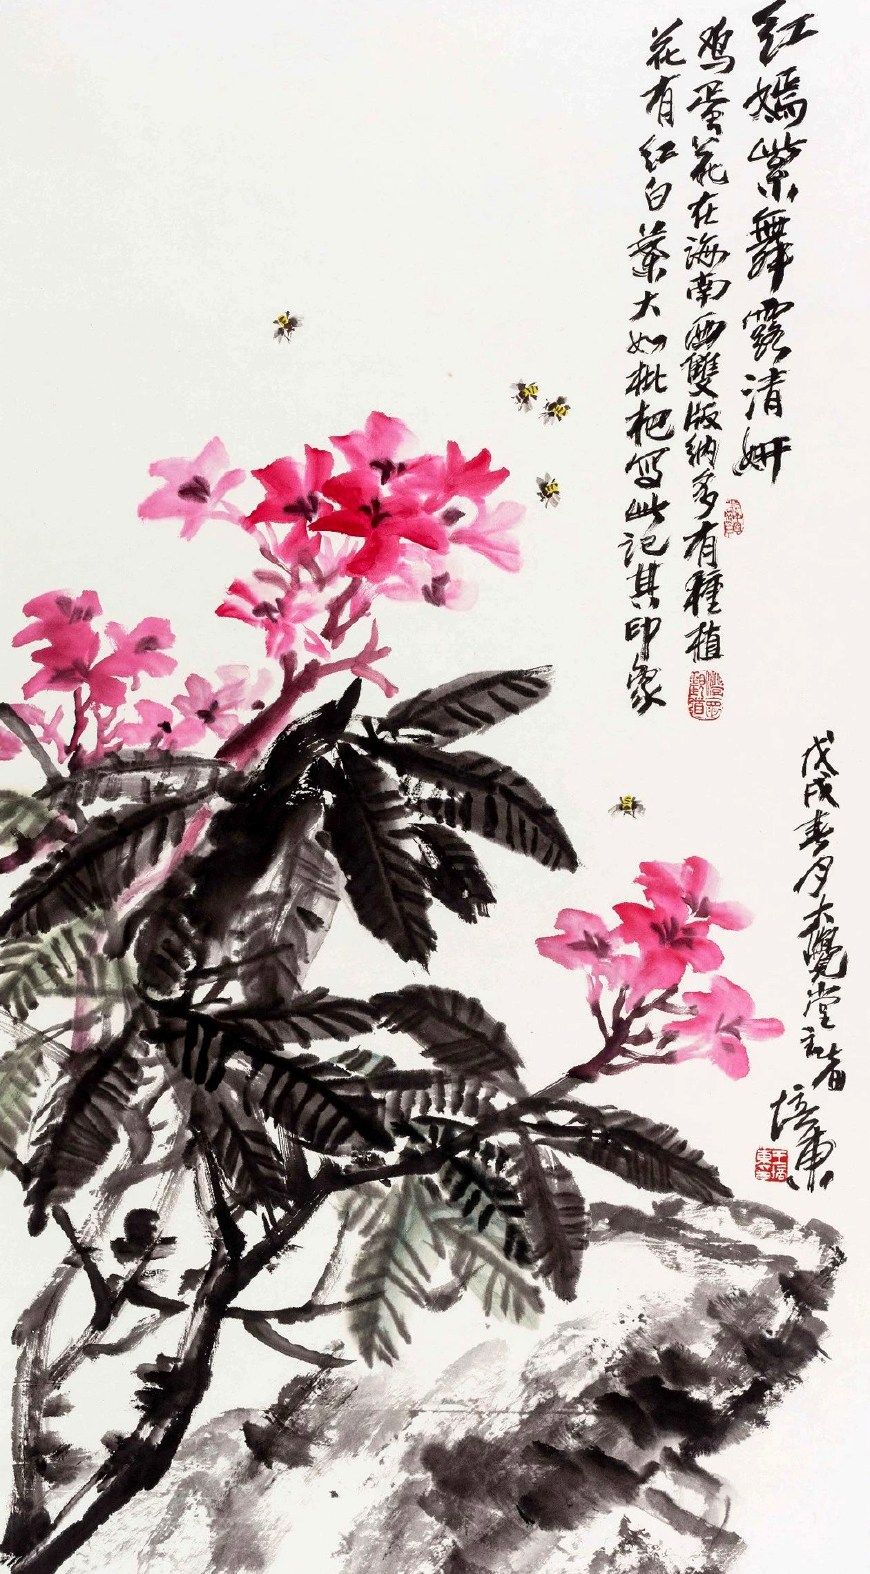 红嫣紫舞露清妍
鸡蛋花在海南西雙版纳多有種植
花有红白葉大如枇杷写此记其印象
戊戌春月大覺堂
培東